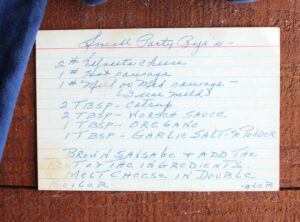 Small Party Rye's -
2# Velveeta cheese
1# Hot sausage
1# Mild or Med sausage -
(I use mild)
2 TBSP - Catsup
2 TBSP - WORSCH SAUCE
1 TBSP - OREGANO
1 TBSP - GARLIC SALT - "N PODDER
BROWN SAUSAGE + ADD THE
REST OF THE INGREDIENTS.
MELT CHEESE IN DOUBLE
BOILER
-OVER